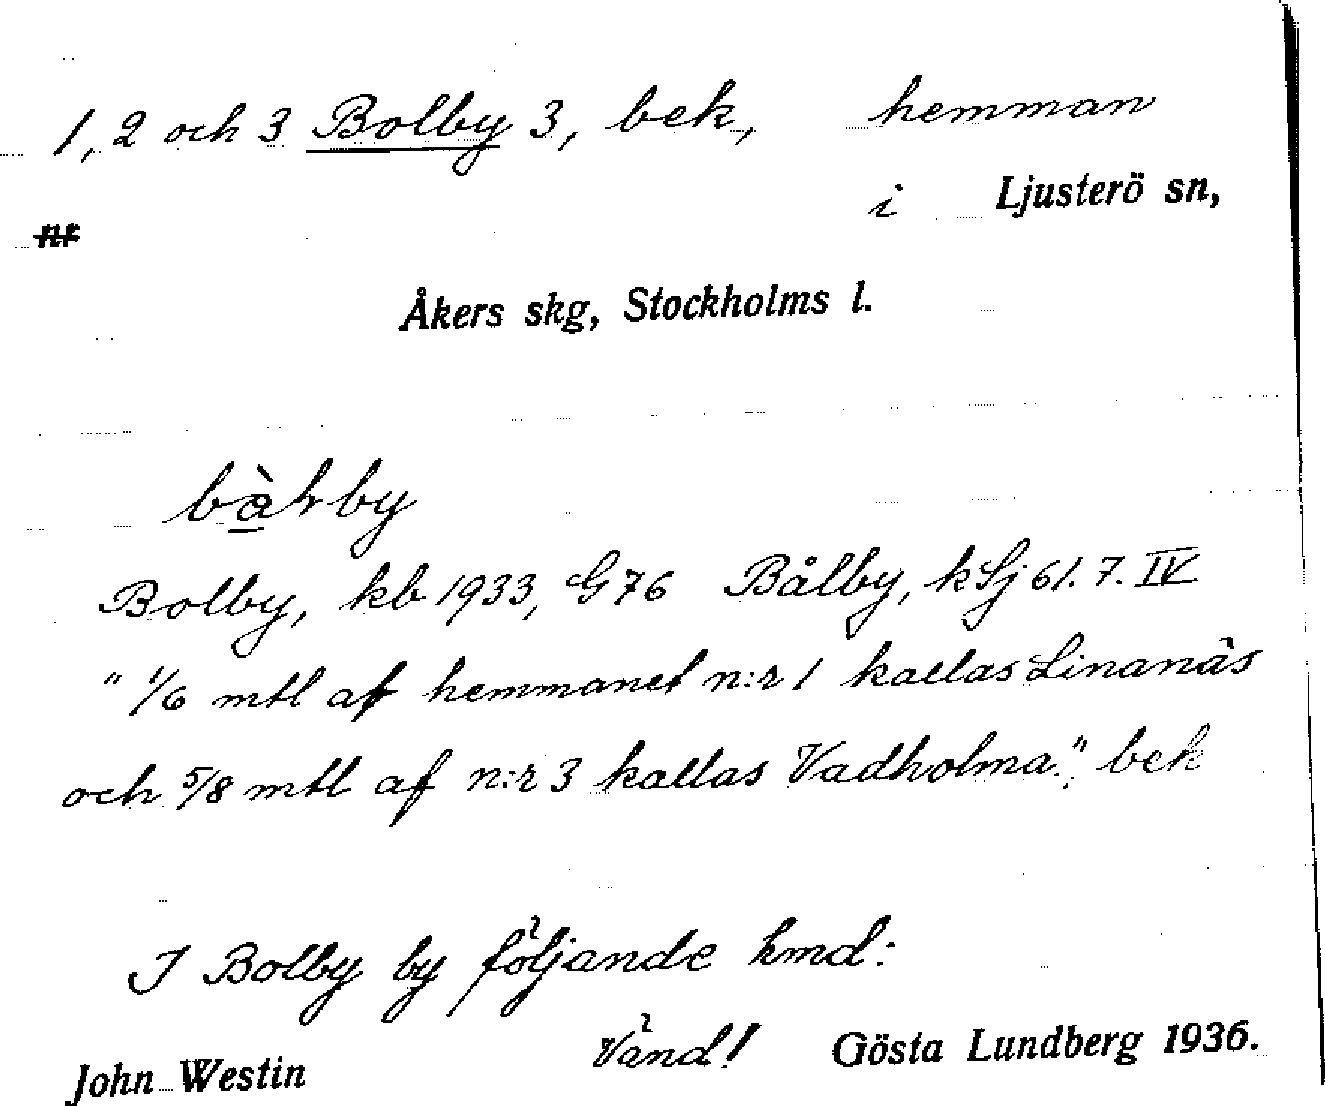 1, 2 och 3 Bolby 3, bek, hemman
i Ljusterö sn,
nr
Åkers skg, Stockholms l.
Bolby, kb 1933, G 76 Bålby, kSj 61. 7. IV
" 1/6 mtl af hemmanet n:r 1 kallas Linanäs
och 5/8 mtl af n:r 3 kallas Vadholma." bek
I Bolby by följande hmd:
Vänd!
John Westin Gösta Lundberg 1936.